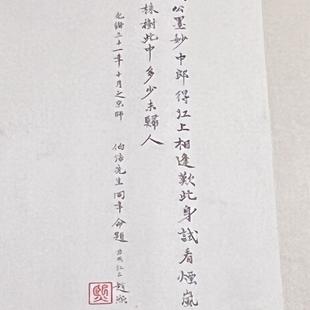 公墨妙中郎得江上相逢歎此身試看煙嵐
株樹此中多少未歸人
光緒三十一年十月之京師
伯信先生同年命題 趙熙
熙